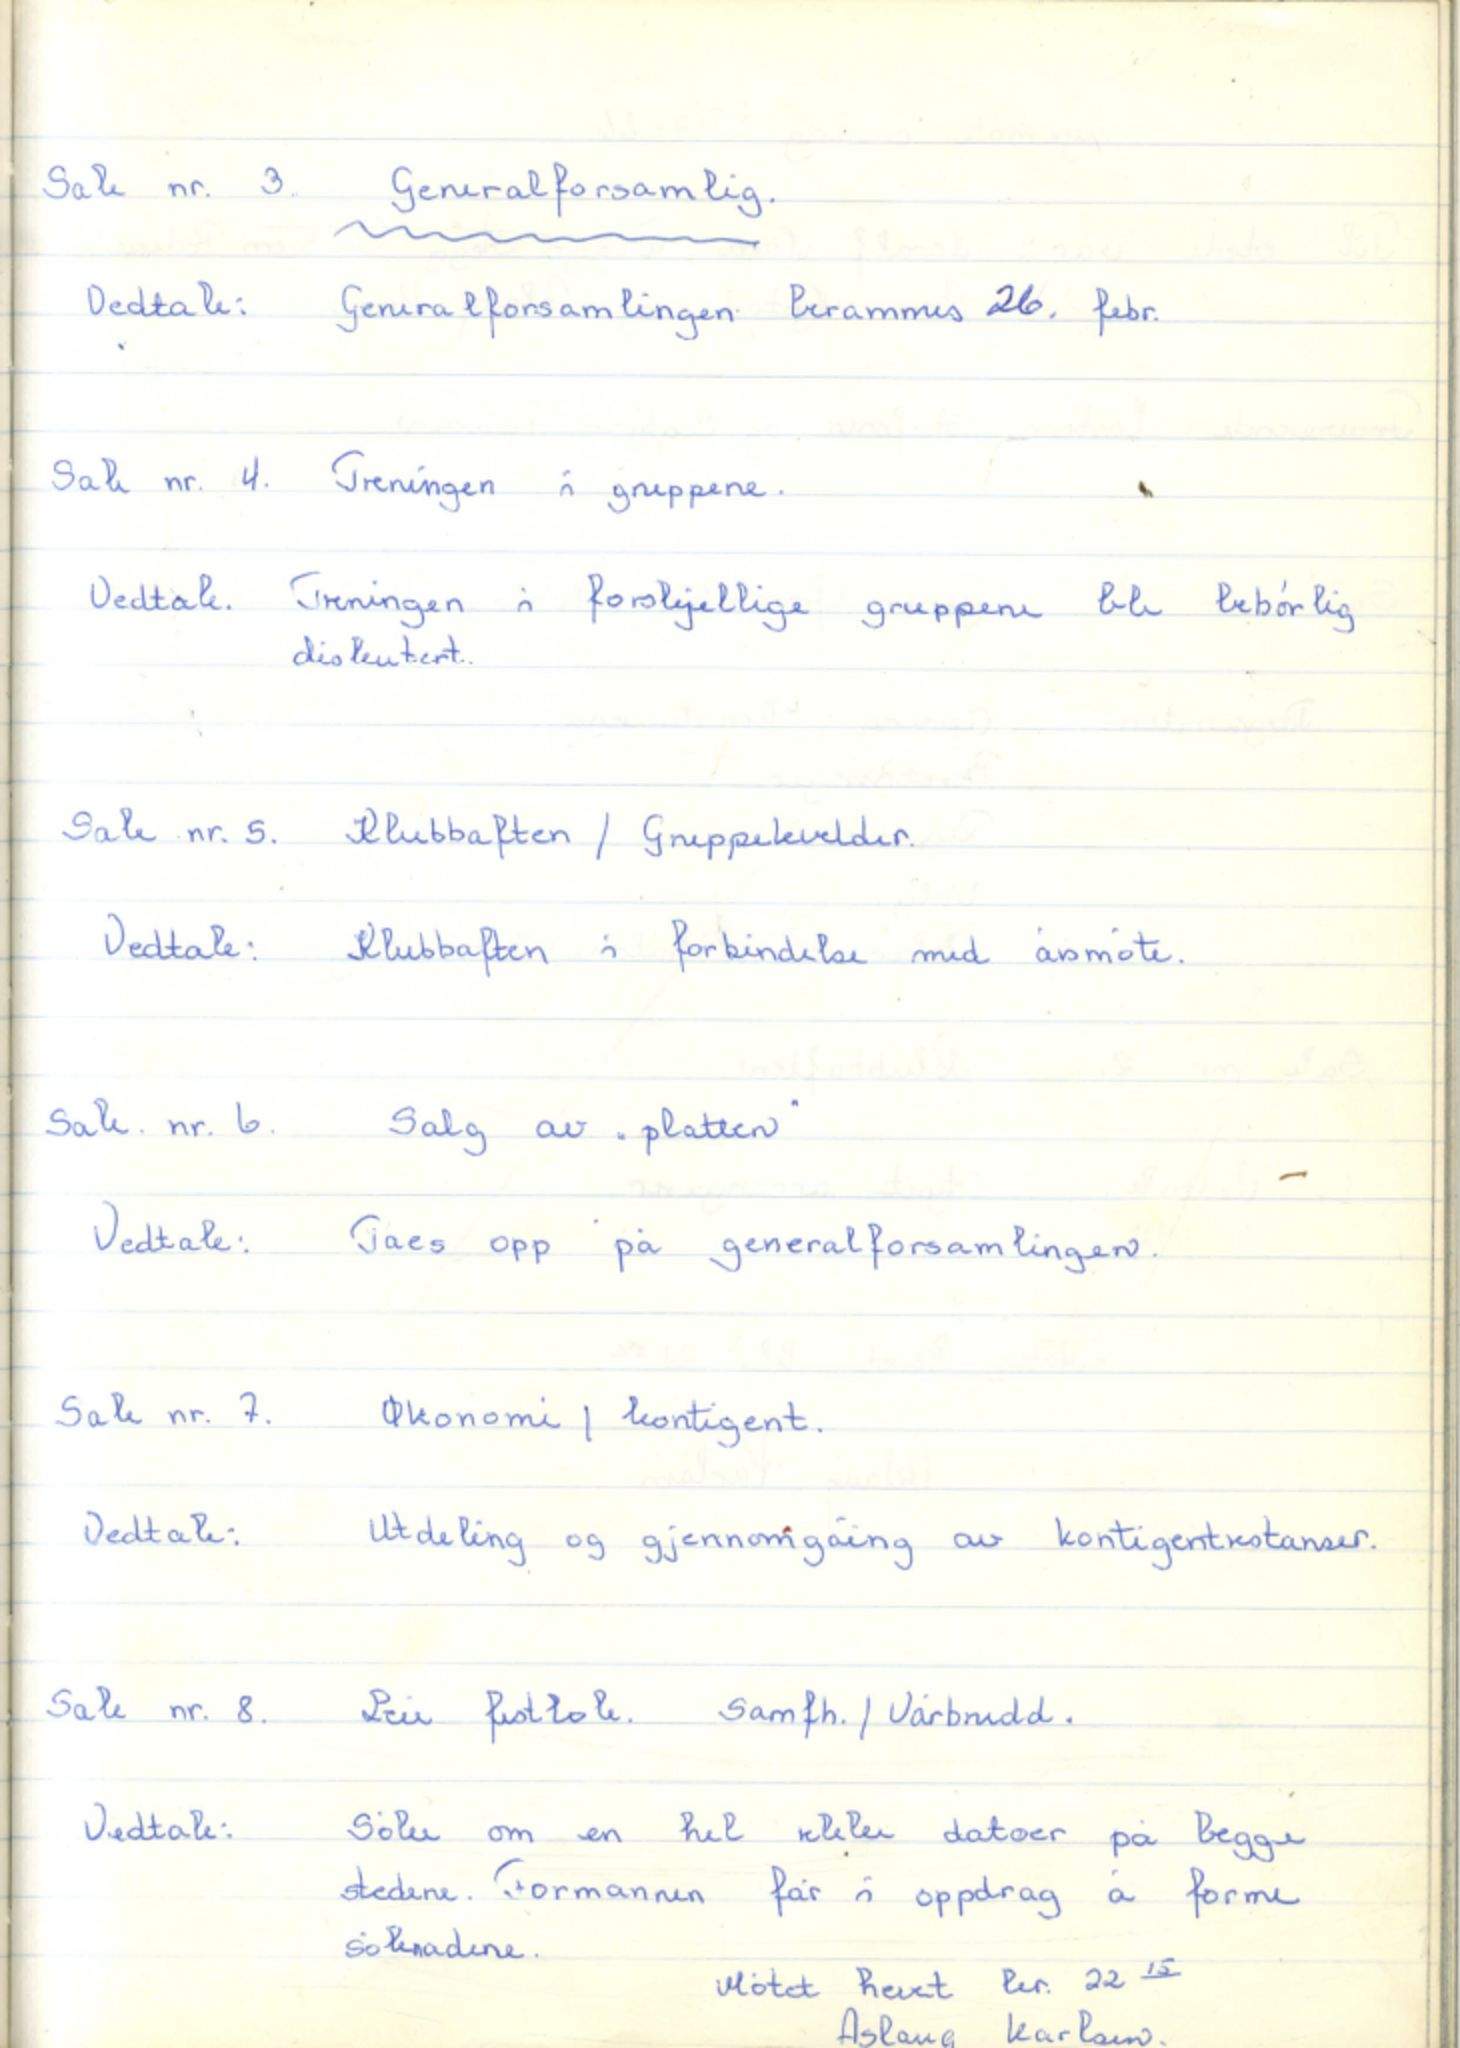 Sak nr. 3. Generalforsamlig.
Vedtak: Generalforsamlingen berammes 26. febr.
Sak nr. 4. Treningen i gruppene.
Vedtak. Treningen i forskjellige gruppene ble behörlig
diskutert.
Sak nr. 5. Klubbaften / Gruppekvelder.
Vedtak: Klubbaften i forbindelse med årsmöte.
Sak. nr. 6. Salg av "platten"
Vedtak: Taes opp på generalforsamlingen.
Sak nr. 7. Økonomi / kontigent.
Vedtak: Utdeling og gjennomgåing av kontigentrestanser.
Sak nr. 8. Leie festlok. Samfh. / Vårbrudd.
Vedtak: Söke om en hel rekke datoer på begge
stedene. Formannen får i oppdrag å forme
söknadene.
Mötet hevet kr. 22 15
Aslaug Karlsen.